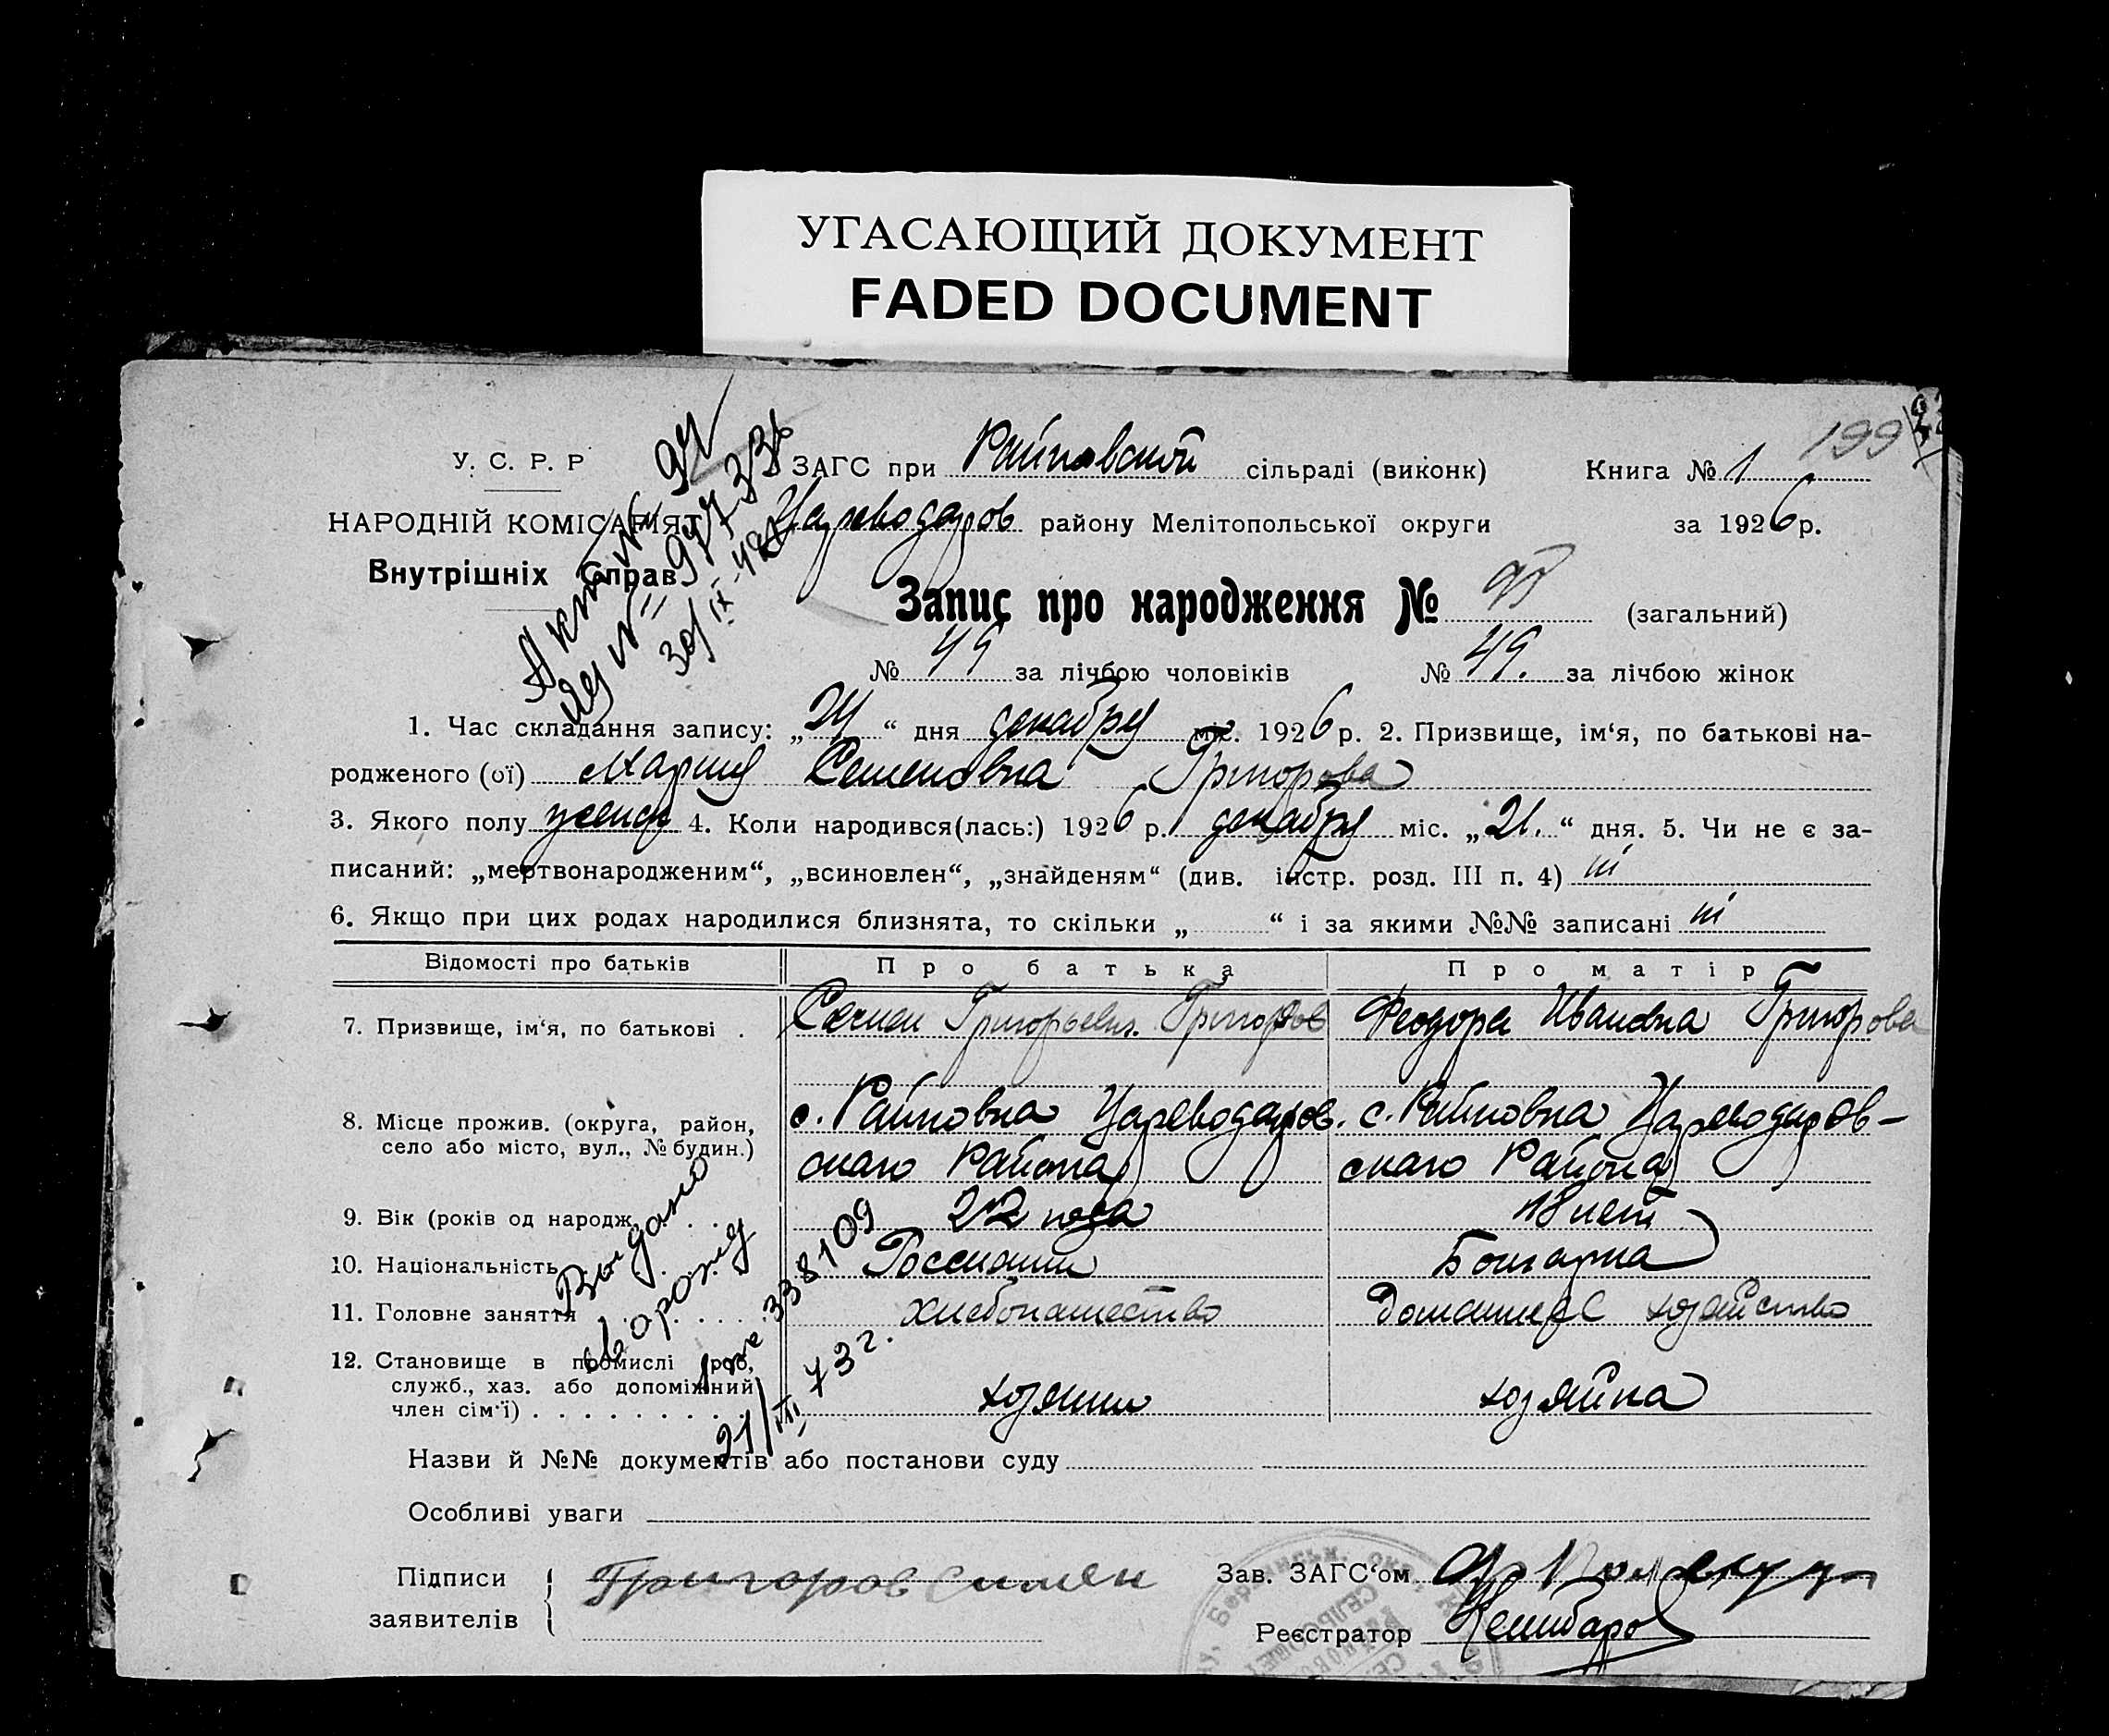 УГАСАЮЩИЙ ДОКУМЕНТ
FADED DOCUMENT
199
У. С. Р. Р
НАРОДНІЙ КОМІСАРІЯТ
Внутрішніх Справ
ЗАГС при Райновской сільраді (виконк)
Книга № 1
Цареводаров району Мелітопольської округи
за 1926 р.
Запис про народження № (загальний)
№ 49 за лічбою чоловіків № 49. за лічбою жінок
1. Час складання запису: „24“ дня декабря міс. 1926 р. 2. Призвище, ім‘я, по батькові на-
родженого (ої) Мария Семеновна Григорова
3. Якого полу женск 4. Коли народився(лась:) 1926 р. декабря міс. „21.“ дня. 5. Чи не є за-
писаний: „мертвонародженим“, „всиновлен“, „знайденям“ (див. інстр. розд. III п. 4) ні
6. Якщо при цих родах народилися близнята, то скільки „ “ і за якими №№ записані ні
Відомості про батьків Про батька Про матір
7. Призвище, ім‘я, по батькові . Семен Григорьевич Григоров Феодора Ивановна Григорова
8. Місце прожив. (округа, район,
село або місто, вул., № будин.)
с. Райновка Цареводаров. с. Райновка Цареводаров-
скаго Района скаго Района
9. Вік (років од народж. 22 года 18 лет
10. Національність Россиянин Болгарка
11. Головне заняття хлебопашество Домашнее хозяйство
12. Становище в промислі роб,
служб., хаз. або допоміжний
член сім‘ї) хозяин хозяйка
Назви й №№ документів або постанови суду
Особливі уваги
Підписи
заявителів
Григоров Симен
Зав. ЗАГС‘ом
Реєстратор
Выдано
338109
21/VIII 73 г.